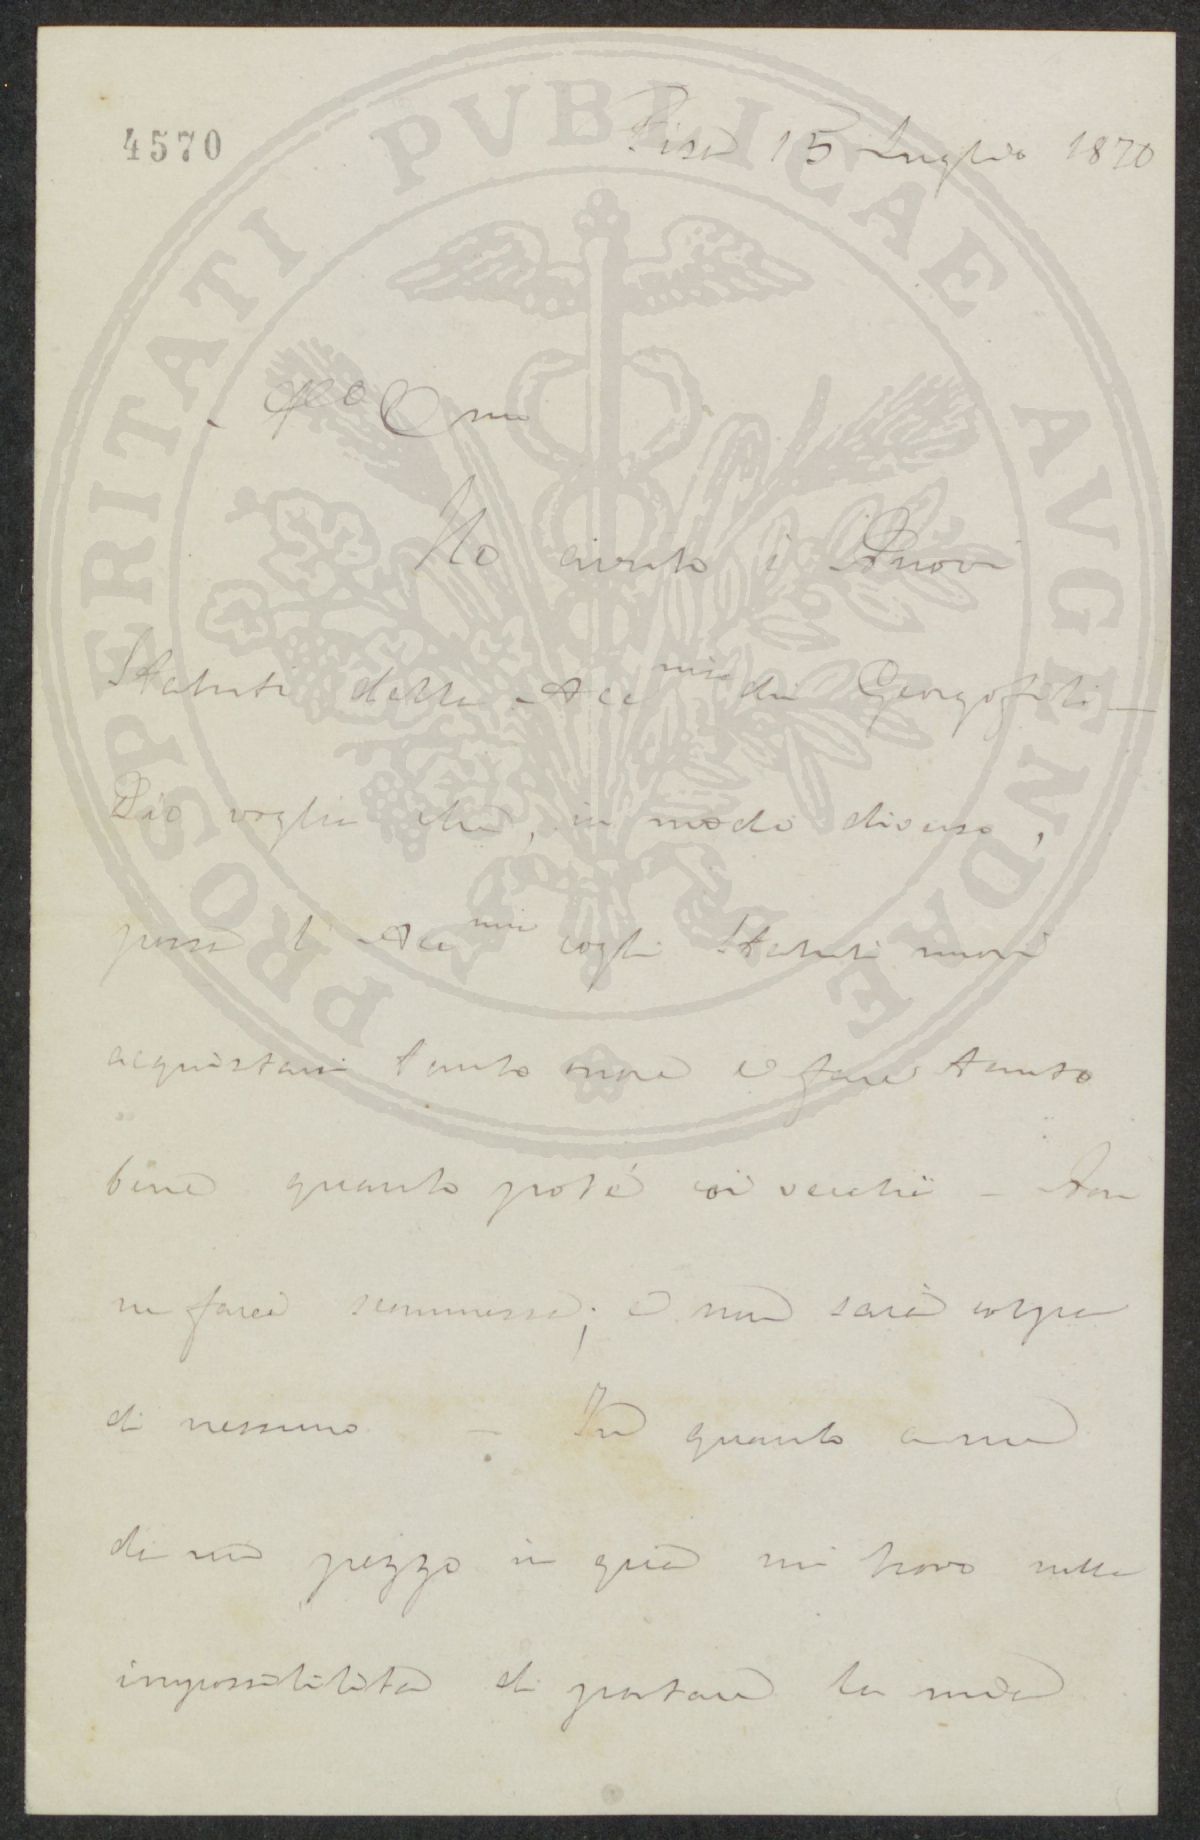 4570
Pisa 15 Luglio 1870
Ho avuto i Nuovi
Statuti della Acc.mia dei Georgofili —
Dio voglia che, in modo diverso,
possa l'Acc.mia cogli Statuti nuovi
acquistare tanto onore e fare tanto
bene quanto poté coi vecchi — Non
ne farei scommessa; e non sarà colpa
di nessuno — In quanto a me
da un pezzo in qua mi trovo nella
impossibilità di portare la mia
PROSPERITATI PVBLICAE AVGENDAE